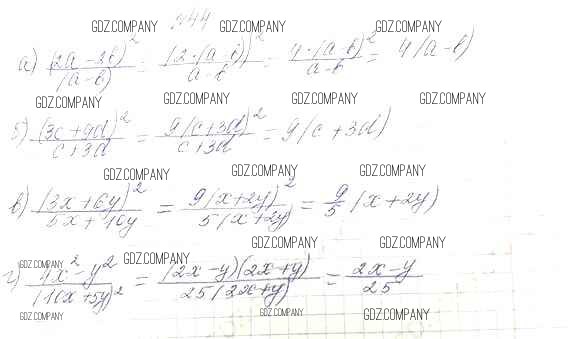 GDZ.COMPANY №44 GDZ.COMPANY GDZ.COMPANY
а) (2a - 2b)² / (a - b) = (2·(a - b))² / a - b = 4·(a - b)² / a - b = 4(a - b)
GDZ.COMPANY GDZ.COMPANY GDZ.COMPANY GDZ.COMPANY
б) (3c + 9d)² / c + 3d = 9(c + 3d)² / c + 3d = 9(c + 3d)
GDZ.COMPANY GDZ.COMPANY GDZ.COMPANY
в) (3x + 6y)² / 5x + 10y = 9(x + 2y)² / 5(x + 2y) = 9/5 (x + 2y)
GDZ.COMPANY GDZ.COMPANY
GDZ.COMPANY GDZ.COMPANY
г) 4x² - y² / (10x + 5y)² = (2x - y)(2x + y) / 25(2x + y) = 2x - y / 25
GDZ.COMPANY GDZ.COMPANY GDZ.COMPANY